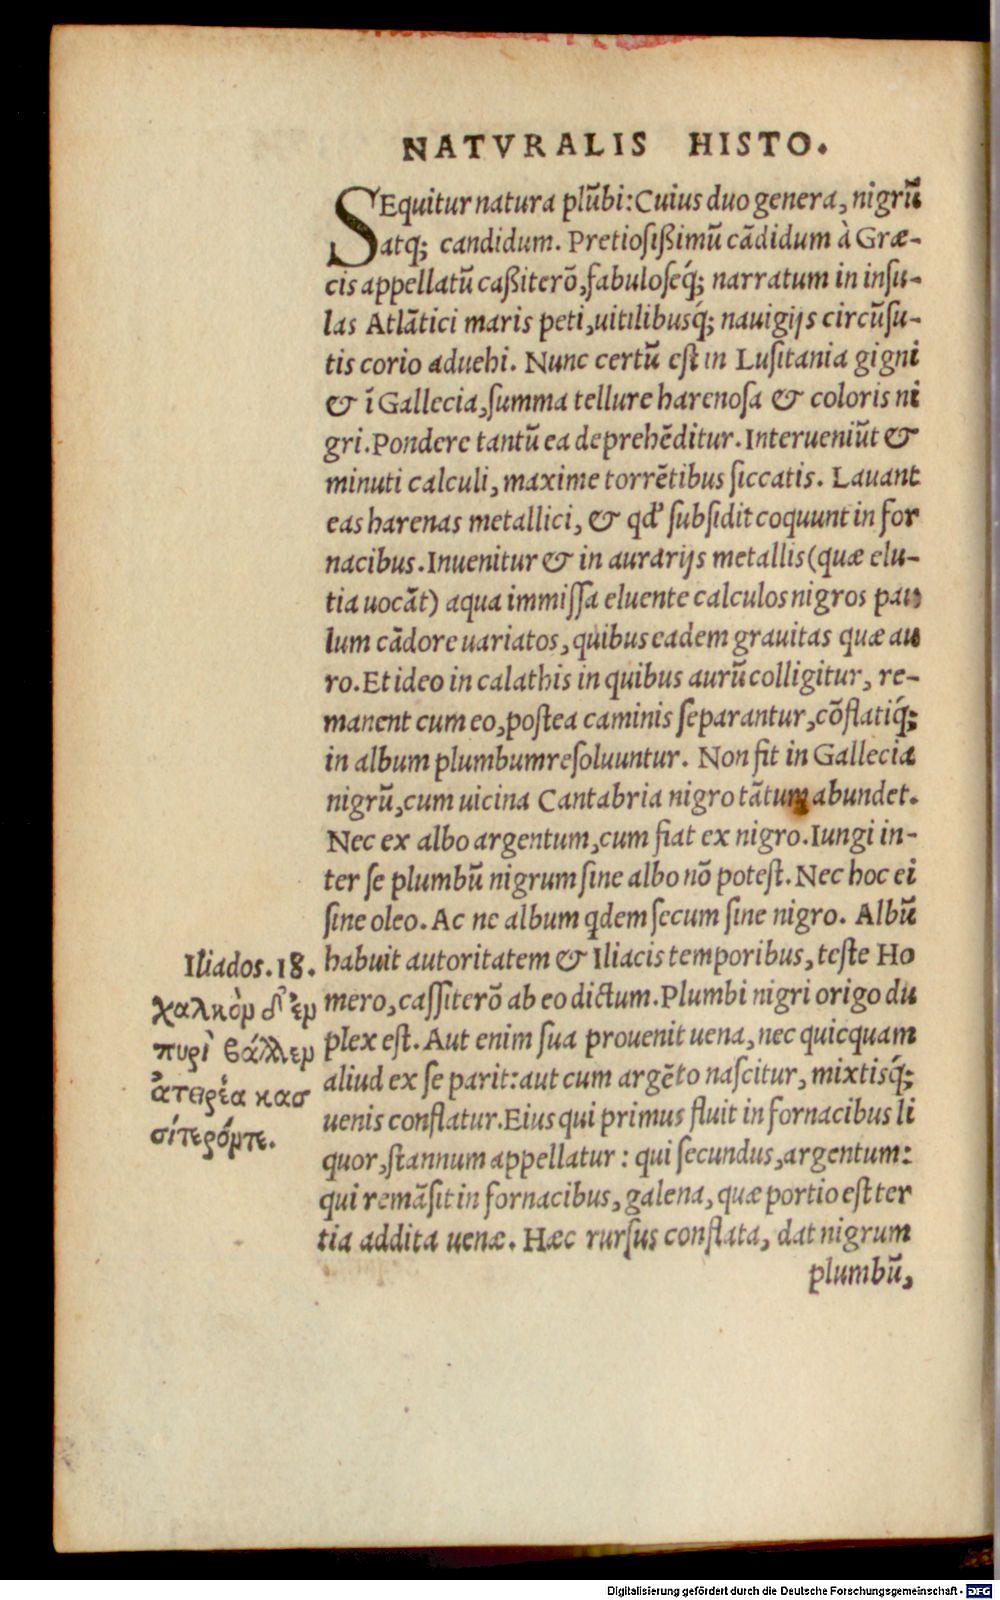 NATVRALIS HISTO.
SEquitur natura plūbi: Cuius duo genera, nigrū
atq; candidum. Pretiosißimū cādidum à Græ-
cis appellatū caßiterō, fabuloseq́; narratum in insu-
las Atlātici maris peti, uitilibusq́; nauigijs circūsu-
tis corio aduehi. Nunc certū est in Lusitania gigni
& ī Gallecia, summa tellure harenosa & coloris ni
gri. Pondere tantū ea deprehēditur. Interueniūt &
minuti calculi, maxime torrētibus siccatis. Lauant
eas harenas metallici, & qd' subsidit coquunt in for
nacibus. Inuenitur & in aurarijs metallis (quæ elu-
tia uocāt) aqua immissa eluente calculos nigros pau
lum cādore uariatos, quibus eadem grauitas quæ au
ro. Et ideo in calathis in quibus aurū colligitur, re-
manent cum eo, postea caminis separantur, cōflatiq́;
in album plumbum resoluuntur. Non fit in Gallecia
nigrū, cum uicina Cantabria nigro tātum abundet.
Nec ex albo argentum, cum fiat ex nigro. Iungi in-
ter se plumbū nigrum sine albo nō potest. Nec hoc ei
sine oleo. Ac ne album qdem secum sine nigro. Albū
habuit autoritatem & Iliacis temporibus, teste Ho
mero, cassiterō ab eo dictum. Plumbi nigri origo du
plex est. Aut enim sua prouenit uena, nec quicquam
aliud ex se parit: aut cum argēto nascitur, mixtisq́;
uenis conflatur. Eius qui primus fluit in fornacibus li
quor, stannum appellatur: qui secundus, argentum:
qui remāsit in fornacibus, galena, quæ portio est ter
tia addita uenæ. Hæc rursus conflata, dat nigrum
plumbū,
Iliados. 18.
χαλκὸν δ' ἐν
πυρὶ βάλλεν
ἀτειρέα κασ
σίτερόντε.
Digitalisierung gefördert durch die Deutsche Forschungsgemeinschaft - DFG